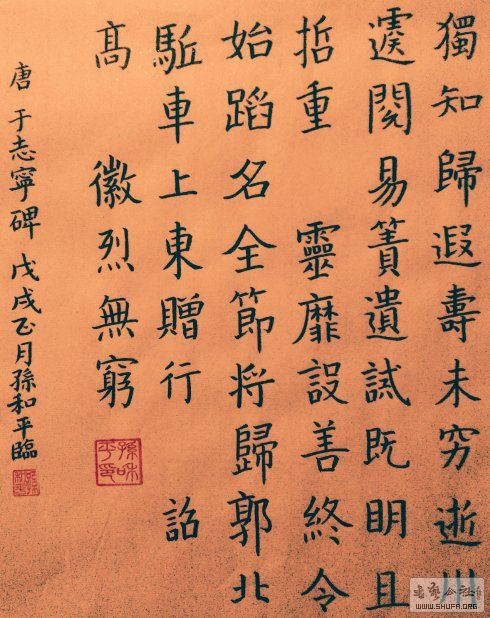 獨知歸遐壽未穷逝川
遽閱易簀遺誡既眀且
哲重 靈靡設善終令
始蹈名全節将歸郭北
駈車上東贈行 詔
髙 徽烈無窮
唐 于志寧碑 戊戌正月孫和平臨
孫和平印
WWW.SHUFA.ORG